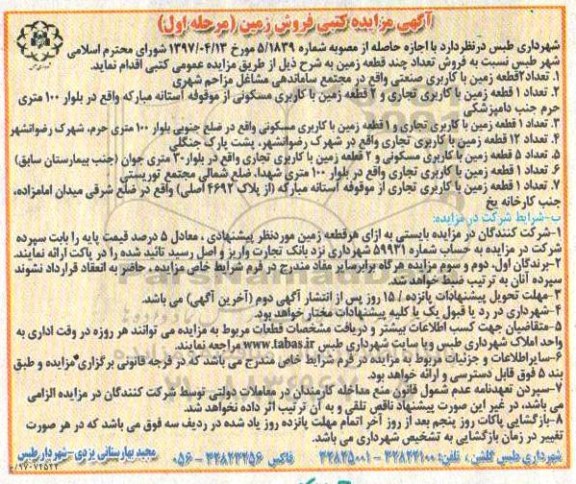 آگهی مزایده کتبی فروش زمین (مرحله اول)
شهرداری طبس درنظردارد با اجازه حاصله از مصوبه شماره ۵/۱۸۳۹ مورخ ۱۳۹۷/۰۴/۱۳ شورای محترم اسلامی
شهر طبس نسبت به فروش تعداد چند قطعه زمین به شرح ذیل از طریق مزایده عمومی کتبی اقدام نماید.
۱. تعداد۲قطعه زمین با کاربری صنعتی واقع در مجتمع ساماندهی مشاغل مزاحم شهری
۲. تعداد ۱ قطعه زمین با کاربری تجاری و ۲ قطعه زمین با کاربری مسکونی از موقوفه آستانه مبارکه واقع در بلوار ۱۰۰ متری
حرم جنب دامپزشکی
۳. تعداد ۱ قطعه زمین با کاربری تجاری و ۱قطعه زمین با کاربری مسکونی واقع در ضلع جنوبی بلوار ۱۰۰ متری حرم، شهرک رضوانشهر
۴. تعداد ۱۲ قطعه زمین با کاربری تجاری واقع در شهرک رضوانشهر، پشت پارک جنگلی
۵. تعداد ۵ قطعه زمین با کاربری مسکونی و ۲ قطعه زمین با کاربری تجاری واقع در بلوار۳۰ متری جوان (جنب بیمارستان سابق)
۶. تعداد ۱ قطعه زمین با کاربری تجاری واقع در بلوار ۱۰۰ متری شهدا، ضلع شمالی مجتمع توریستی
۷. تعداد ۱ قطعه زمین با کاربری تجاری از موقوفه آستانه مبارکه (از پلاک ۴۶۹۲ اصلی) واقع در ضلع شرقی میدان امامزاده،
جنب کارخانه یخ
ب-شرایط شرکت در مزایده:
۱-شرکت کنندگان در مزایده بایستی به ازای هرقطعه زمین موردنظر پیشنهادی ، معادل ۵ درصد قیمت پایه را بابت سپرده
شرکت در مزایده به حساب شماره ۵۹۹۳۱ شهرداری نزد بانک تجارت واریز و اصل رسید تائید شده را در پاکت ارائه نمایند.
۲-برندگان اول، دوم و سوم مزایده هرگاه برابرسایر مفاد مندرج در فرم شرایط خاص مزایده ، حاضر به انعقاد قرارداد نشوند
سپرده آنان به ترتیب ضبط خواهد شد.
۳-مهلت تحویل پیشنهادات پانزده / ۱۵ روز پس از انتشار آگهی دوم (آخرین آگهی) می باشد.
۴-شهرداری در رد یا قبول یک یا کلیه پیشنهادات مختار خواهد بود.
۵-متقاضیان جهت کسب اطلاعات بیشتر و دریافت مشخصات قطعات مربوط به مزایده می توانند هر روزه در وقت اداری به
واحد املاک شهرداری طبس ویا سایت شهرداری طبس www.tabas.ir مراجعه نمایند.
۶-سایراطلاعات و جزئیات مربوط به مزایده در فرم شرایط خاص مندرج می باشد که در فرجه قانونی برگزاری مزایده و طبق
بند ۵ فوق قابل دسترسی و ارائه خواهد بود.
۷-سپردن تعهدنامه عدم شمول قانون منع مداخله کارمندان در معاملات دولتی توسط شرکت کنندگان در مزایده الزامی
می باشد، در غیر این صورت پیشنهاد ناقص تلقی و به آن ترتیب اثر داده نخواهد شد.
۸-بازگشایی پاکات روز پنجم بعد از روز آخر اتمام مهلت پانزده روز یاد شده در ردیف سه فوق می باشد که در هر صورت
تغییر در زمان بازگشایی به تشخیص شهرداری می باشد.
شهرداری طبس گلشن ، تلفن: ۳۲۸۲۴۱۰۰ - ۳۲۸۲۵۰۰۱ فاکس ۳۲۸۲۴۲۵۶ - ۰۵۶ مجید بهارستانی یزدی-شهردار طبس